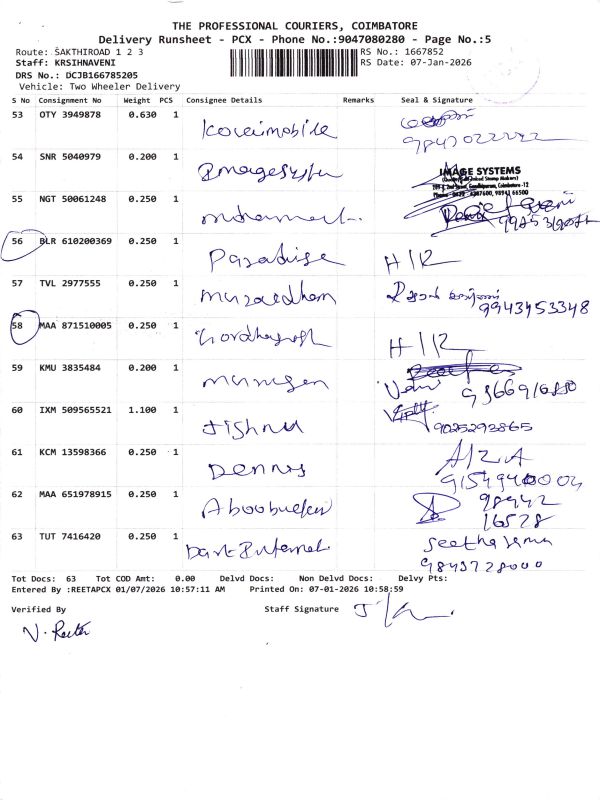 THE PROFESSIONAL COURIERS, COIMBATORE
Delivery Runsheet - PCX - Phone No.:9047080280 - Page No.:5
Route: SAKTHIROAD 1 2 3 RS No.: 1667852
Staff: KRSIHNAVENI RS Date: 07-Jan-2026
DRS No.: DCJB166785205
Vehicle: Two Wheeler Delivery
S No Consignment No Weight PCS Consignee Details Remarks Seal & Signature
53 OTY 3949878 0.630 1 Kovaimobile
9843022222
54 SNR 5040979 0.200 1 Imagesystem
IMAGE SYSTEMS
55 NGT 50061248 0.250 1
56 BLR 610200369 0.250 1 Paradise H/R
57 TVL 2977555 0.250 1
9943453348
58 MAA 871510005 0.250 1 H/R
59 KMU 3835484 0.200 1 Murugan
60 IXM 509565521 1.100 1 Jishnu
9025293865
61 KCM 13598366 0.250 1 Dennys A/2 A
62 MAA 651978915 0.250 1 98942
16528
63 TUT 7416420 0.250 1 Dart Internet
9843728000
Tot Docs: 63 Tot COD Amt: 0.00 Delvd Docs: Non Delvd Docs: Delvy Pts:
Entered By :REETAPCX 01/07/2026 10:57:11 AM Printed On: 07-01-2026 10:58:59
Verified By Staff Signature